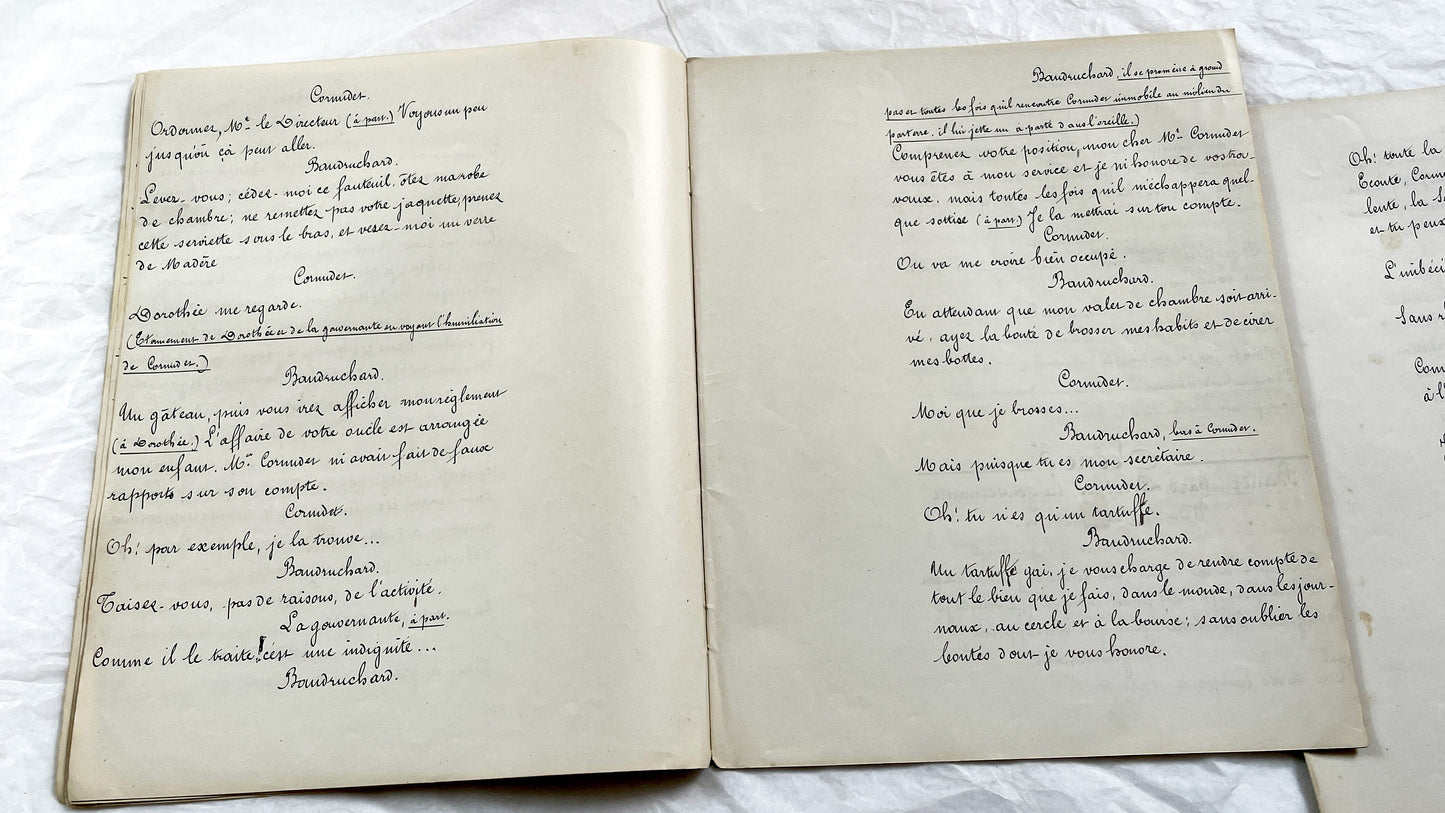 Cornudet.
Ordonnez, Mr. le Directeur (à part.) Voyons un peu
jusqu'où çà peut aller.
Baudruchard.
Levez-vous; cédez-moi ce fauteuil, ôtez ma robe
de chambre; ne remettez-pas votre jaquette, prenez
cette serviette sous le bras, et vesez-moi un verre
de Madère
Cornudet.
Dorothée me regarde.
(Etonnement de Dorothée et de la gouvernante en voyant l'humiliation
de Cornudet.)
Baudruchard.
Un gâteau, puis vous irez afficher mon réglement
(à Dorothée.) L'affaire de votre oncle est arrangée
mon enfant. Mr. Cornudet m'avait fait de faux
rapports sur son compte.
Cornudet.
Oh! par exemple, je la trouve...
Baudruchard.
Taisez-vous, pas de raisons, de l'activité.
La gouvernante, à part.
Comme il le traite! c'est une indignité...
Baudruchard.
Baudruchard, il se promène à grand
pas et toutes les fois qu'il rencontre Cornudet immobile au milieu du
parterre, il lui jette un à parté dans l'oreille.)
Comprenez votre position, mon cher Mr. Cornudet
vous êtes à mon service et je m'honore de vos tra-
vaux, mais toutes les fois qu'il m'échappera quel-
que sottise (à part) Je la mettrai sur ton compte.
Cornudet.
On va me croire bien occupé.
Baudruchard.
En attendant que mon valet de chambre soit arri-
vé, ayez la bonté de brosser mes habits et de cirer
mes bottes.
Cornudet.
Moi que je brosses...
Baudruchard, bas à Cornudet.
Mais puisque tu es mon secrétaire.
Cornudet.
Oh! tu n'es qu'un tartuffe.
Baudruchard.
Un tartuffe gai, je vous charge de rendre compte de
tout le bien que je fais, dans le monde, dans les jour-
naux, au cercle et à la bourse; sans oublier les
bontés dont je vous honore.
Oh! toute la
Ecoute, Corn
lente, la
et tu peux
L'imbéci
Sans
Com
à l'